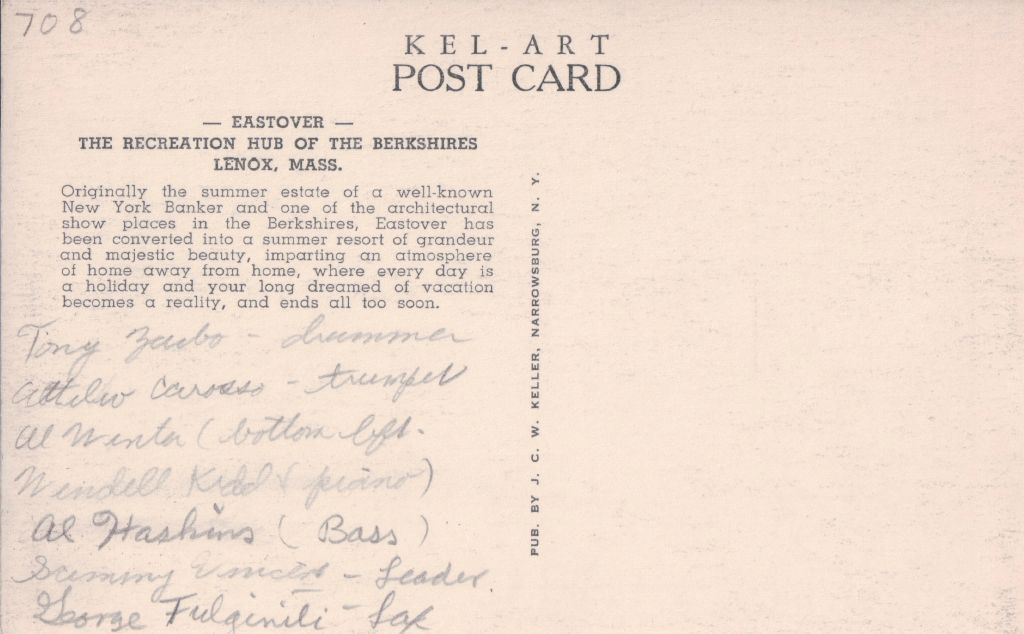 708
KEL-ART
POST CARD
— EASTOVER —
THE RECREATION HUB OF THE BERKSHIRES
LENOX, MASS.
Originally the summer estate of a well-known
New York Banker and one of the architectural
show places in the Berkshires, Eastover has
been converted into a summer resort of grandeur
and majestic beauty, imparting an atmosphere
of home away from home, where every day is
a holiday and your long dreamed of vacation
becomes a reality, and ends all too soon.
Tony - drummer
Attilio Carosso - trumpet
Al Winter (bottom left.
Wendell Kidd (piano)
Al Haskins (Bass)
Sammy Vincent - Leader
George Fulginiti - Sax
PUB. BY J. C. W. KELLER, NARROWSBURG, N. Y.